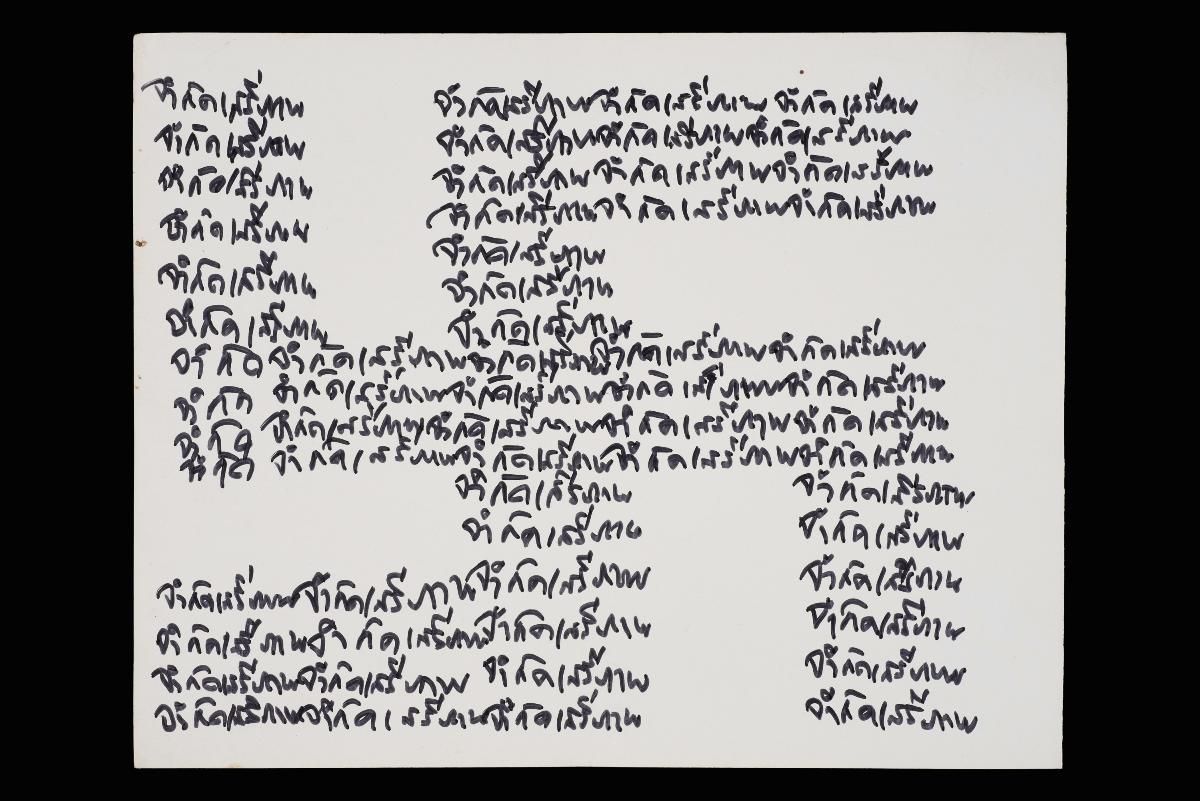 จำกัดเสรีภาพ จำกัดเสรีภาพจำกัดเสรีภาพ จำกัดเสรีภาพ
จำกัดเสรีภาพ จำกัดเสรีภาพจำกัดเสรีภาพจำกัดเสรีภาพ
จำกัดเสรีภาพ จำกัดเสรีภาพจำกัดเสรีภาพจำกัดเสรีภาพ
จำกัดเสรีภาพ จำกัดเสรีภาพจำกัดเสรีภาพจำกัดเสรีภาพ
จำกัดเสรีภาพ จำกัดเสรีภาพ
จำกัดเสรีภาพ จำกัดเสรีภาพ
จำกัดเสรีภาพ จำกัดเสรีภาพ
จำกัด จำกัดเสรีภาพจำกัดเสรีภาพจำกัดเสรีภาพจำกัดเสรีภาพ
จำกัด จำกัดเสรีภาพจำกัดเสรีภาพจำกัดเสรีภาพจำกัดเสรีภาพ
จำกัด จำกัดเสรีภาพจำกัดเสรีภาพจำกัดเสรีภาพจำกัดเสรีภาพ
จำกัด จำกัดเสรีภาพจำกัดเสรีภาพจำกัดเสรีภาพจำกัดเสรีภาพ
จำกัดเสรีภาพ จำกัดเสรีภาพ
จำกัดเสรีภาพ จำกัดเสรีภาพ
จำกัดเสรีภาพจำกัดเสรีภาพจำกัดเสรีภาพ จำกัดเสรีภาพ
จำกัดเสรีภาพจำกัดเสรีภาพจำกัดเสรีภาพ จำกัดเสรีภาพ
จำกัดเสรีภาพจำกัดเสรีภาพ จำกัดเสรีภาพ จำกัดเสรีภาพ
จำกัดเสรีภาพจำกัดเสรีภาพจำกัดเสรีภาพ จำกัดเสรีภาพ